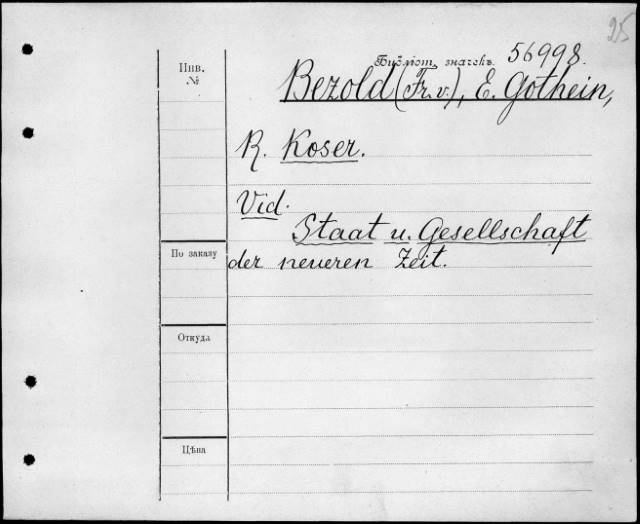 25
Инв.
№
Библіот. значекъ 56998.
Bezold (Fr. v.), E. Gothein,
R. Koser.
Vid.
Staat u. Gesellschaft
По заказу
der neueren Zeit.
Откуда
Цѣна